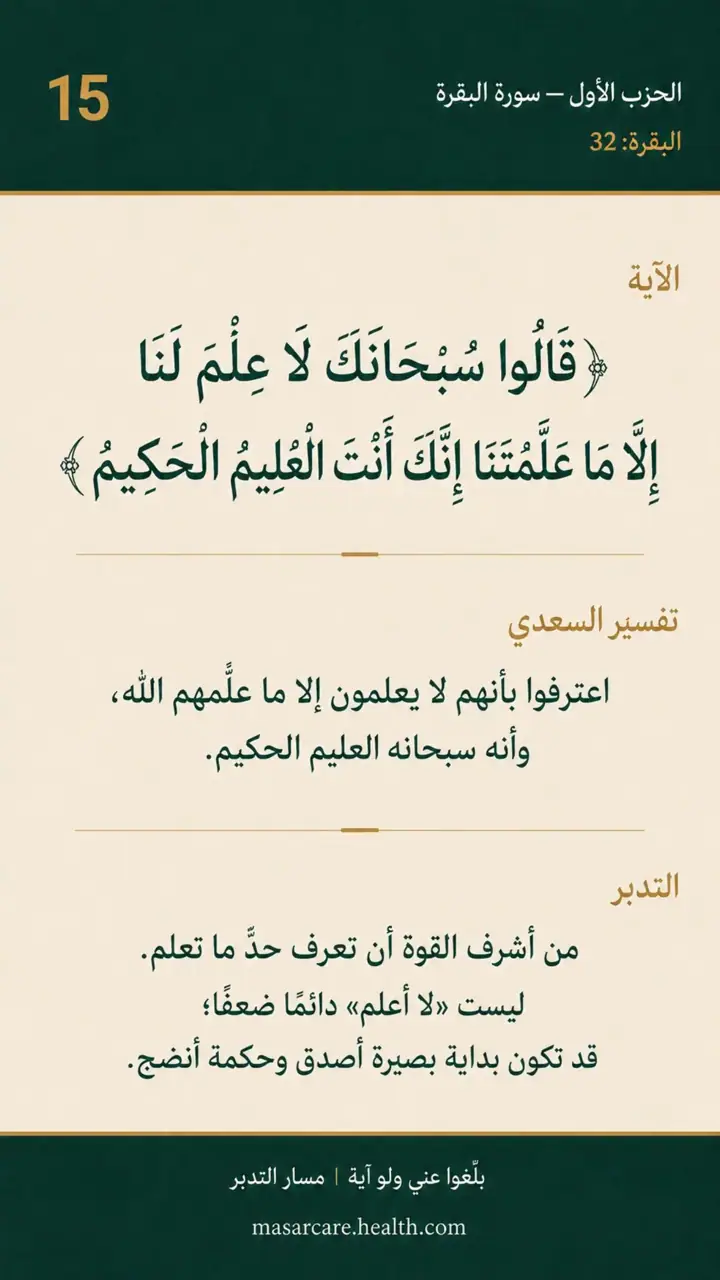 15
الحزب الأول — سورة البقرة
البقرة: 32
الآية
﴿قَالُوا سُبْحَانَكَ لَا عِلْمَ لَنَا
إِلَّا مَا عَلَّمُتَنَا إِنَّكَ أَنْتَ الْعُلِيمُ الْحَكِيمُ﴾
تفسير السعدي
اعترفوا بأنهم لا يعلمون إلا ما علَّمهم الله،
وأنه سبحانه العليم الحكيم.
التدبر
من أشرف القوة أن تعرف حدَّ ما تعلم.
ليست «لا أعلم» دائمًا ضعفًا؛
قد تكون بداية بصيرة أصدق وحكمة أنضج.
بلِّغوا عني ولو آية | مسار التدبر
masarcare.health.com